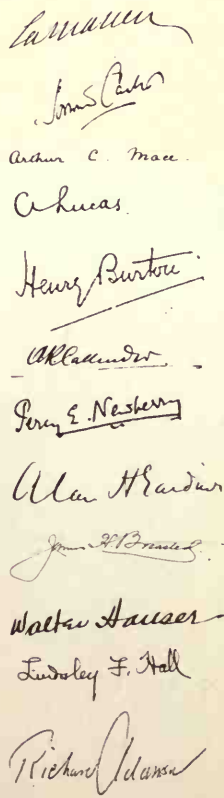 Carnarvon
Howard Carter
Arthur C. Mace.
A Lucas.
Henry Burton.
AR Callender
Percy E. Newberry
Alan H Gardiner
James H. Breasted.
Walter Hauser
Lindsley F. Hall
Richard Adamson